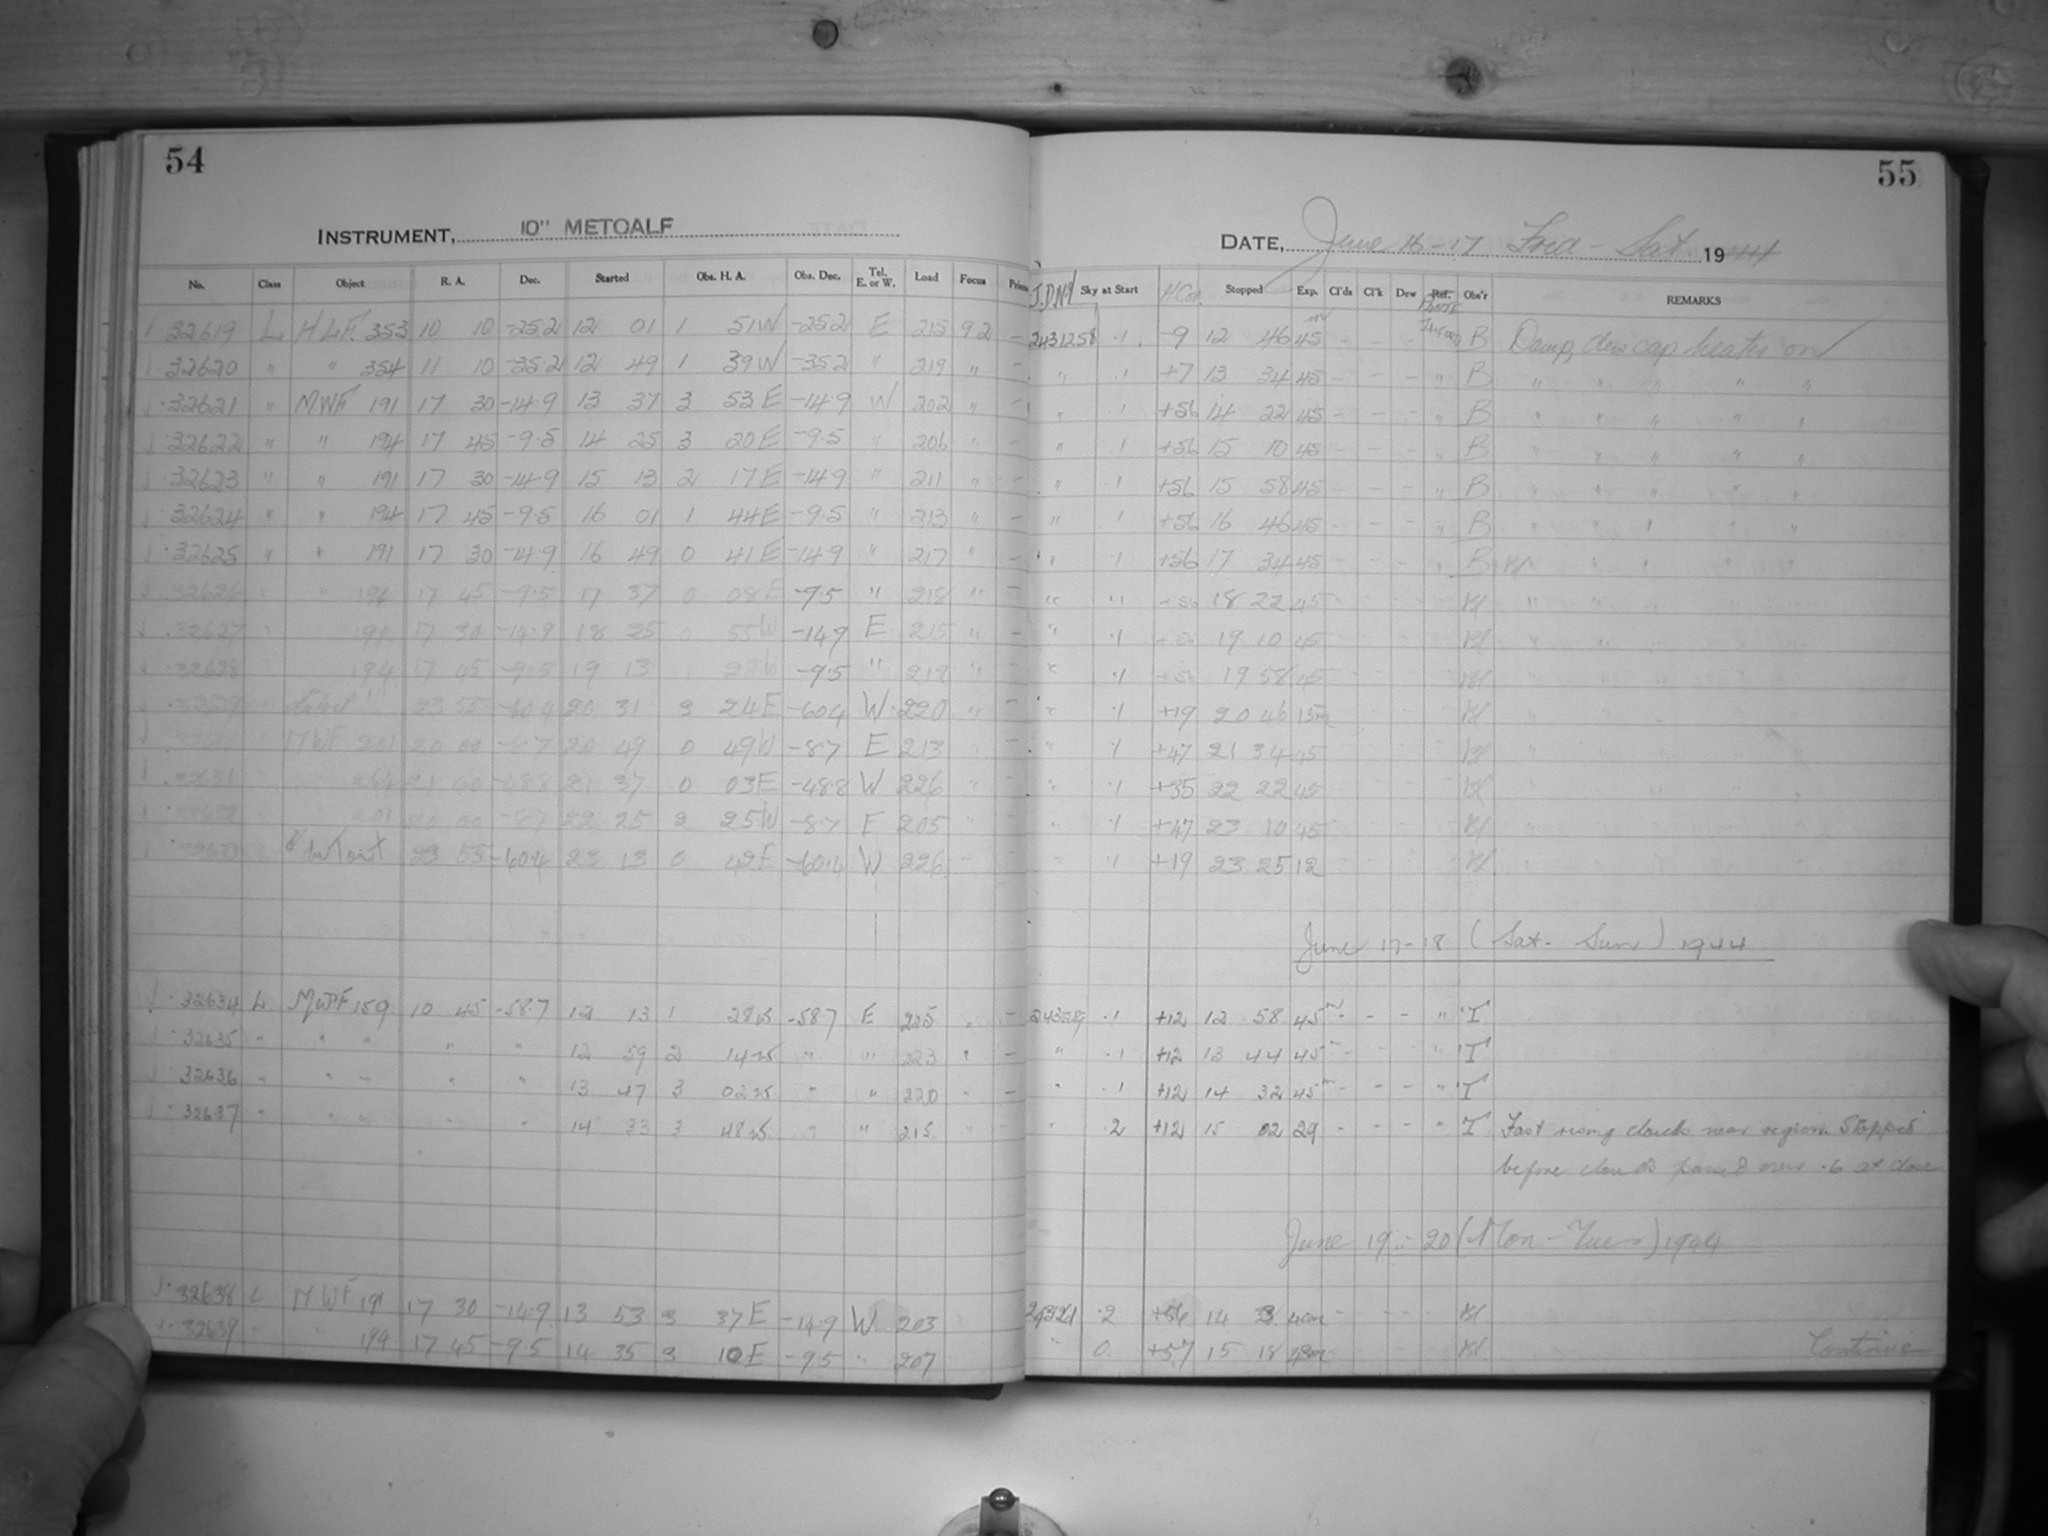 54
55
INSTRUMENT, 10" METCALF
DATE, June 16-17 Fri - Sat. 1944
No. Class Object R. A. Dec. Started Obs. H. A. Obs. Dec. Tel. E. or W. Load Focus J.D. No. Sky at Start Stopped Exp. Cl'ds Cl'k Dew Ref. Obs'r REMARKS
32619 L HLF. 353 10 10 -25.2 12 01 1 51W -25.2 E 215 9.2 - 2431258 .1 -9 12 46 45 - - - B Damp, dew cap heater on
32620 " " 354 11 10 -35.2 12 49 1 39W -35.2 " 219 " - " .1 +7 13 34 45 - - - " B " " " " "
32621 " MWF 191 17 30 -14.9 13 37 3 53E -14.9 W 202 " - " .1 +56 14 22 45 - - - " B " " " " "
32622 " " 194 17 45 -9.5 14 25 3 20E -9.5 " 206 " - " .1 +56 15 10 45 - - - " B " " " " "
32623 " " 191 17 30 -14.9 15 13 2 17E -14.9 " 211 " - " .1 +56 15 58 45 - - - " B " " " " "
32624 " " 194 17 45 -9.5 16 01 1 44E -9.5 " 213 " - " .1 +56 16 46 45 - - - " B " " " " "
32625 " " 191 17 30 -14.9 16 49 0 41E -14.9 " 217 " - " .1 +56 17 34 45 - - - " B " " " "
32626 " 194 17 45 -9.5 17 37 0 08E -9.5 " 218 " - " " +56 18 22 45
32627 191 17 30 -14.9 18 25 0 55W -14.9 E 215 " - " .1 +56 19 10 45
32628 194 17 45 -9.5 19 13 1 28W -9.5 " 212 " - " .1 +56 19 58 45
32629 23 55 -60.4 20 31 3 24E -60.4 W 220 " - " .1 +19 20 46 15m
32630 MWF 201 20 00 -8.7 20 49 0 49W -8.7 E 213 " - " .1 +47 21 34 45
32631 264 21 40 -48.8 21 37 0 03E -48.8 W 226 " - " .1 +35 22 22 45
32632 201 20 00 -8.7 22 25 2 25W -8.7 E 205 " - " .1 +47 23 10 45
32633 23 55 -60.4 23 13 0 42E -60.4 W 226 " - " .1 +19 23 25 12
June 17-18 (Sat- Sun) 1944
32634 L MWF 159 10 45 -58.7 12 13 1 28W -58.7 E 225 " - .1 +12 12 58 45m - - - " T
32635 " " " " " 12 59 2 14W " " 223 " - " .1 +12 13 44 45m - - - " T
32636 " " " " " 13 47 3 02W " " 220 " - " .1 +12 14 32 45m - - - " T
32637 " " " " " 14 33 3 48W " " 215 " - " .2 +12 15 02 29 - - - " T Fast rising clouds near region. Stopped
before clouds passed over .6 at close
June 19-20 (Mon - Tues) 1944
32638 L MWF 191 17 30 -14.9 13 53 3 37E -14.9 W 203 .2 +56 14 33 40m - - - -
32639 " " 194 17 45 -9.5 14 35 3 10E -9.5 " 207 " 0 +57 15 18 - - - -
Continue